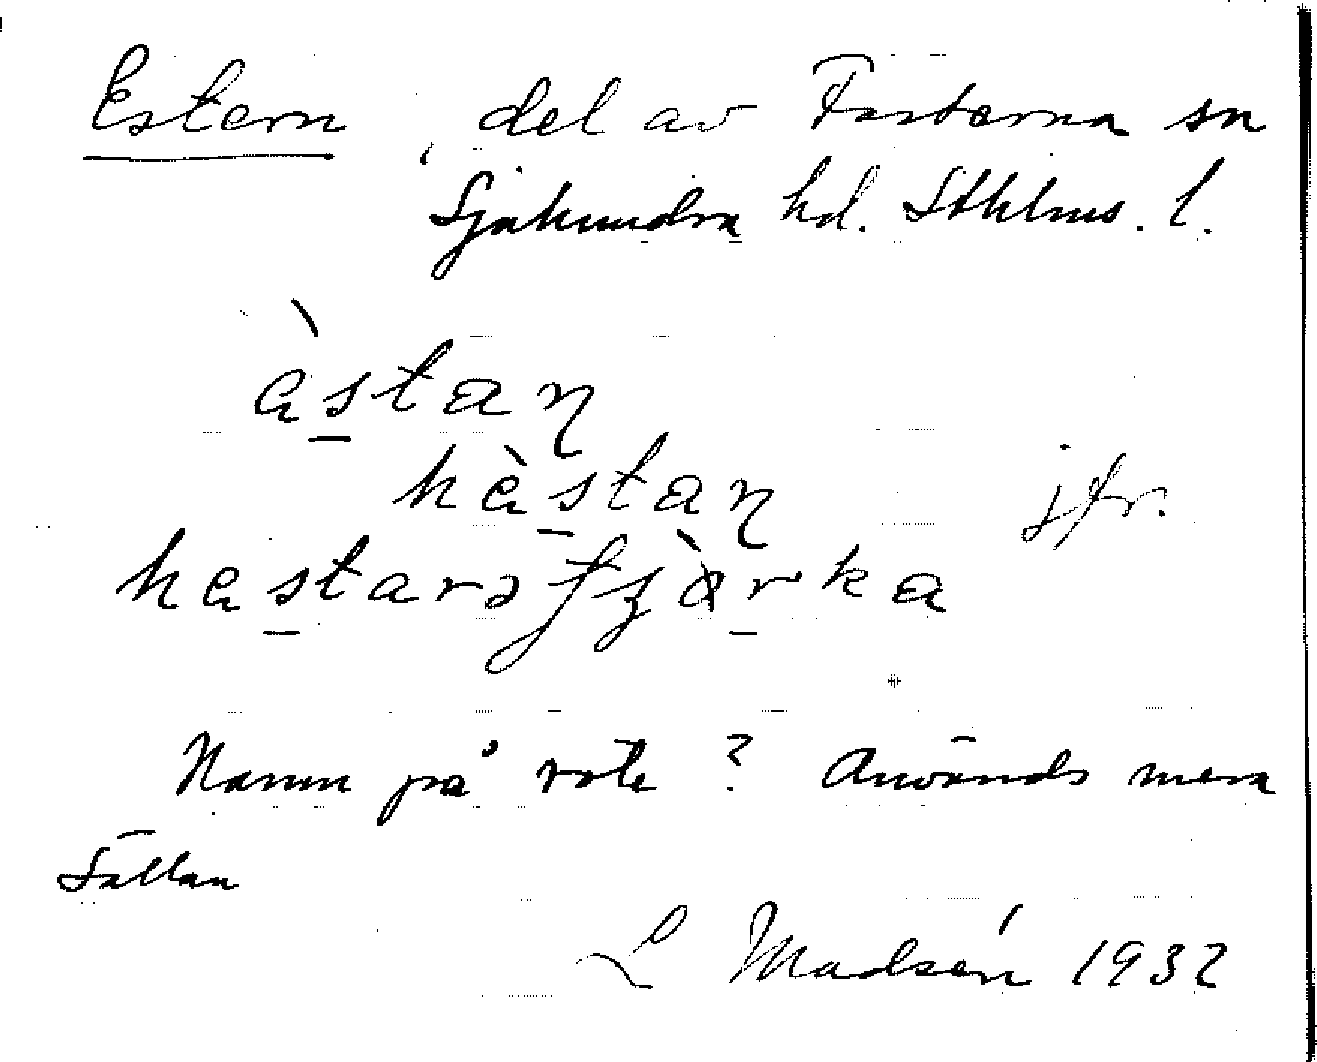 Estern, del av Fasterna sn
Sjuhundra hd. Sthlms. l.
àstaɳ
hàstaɳ jfr.
hastarə fʒàrka
Namn på rote? Används mera
sällan
L Madsén 1932